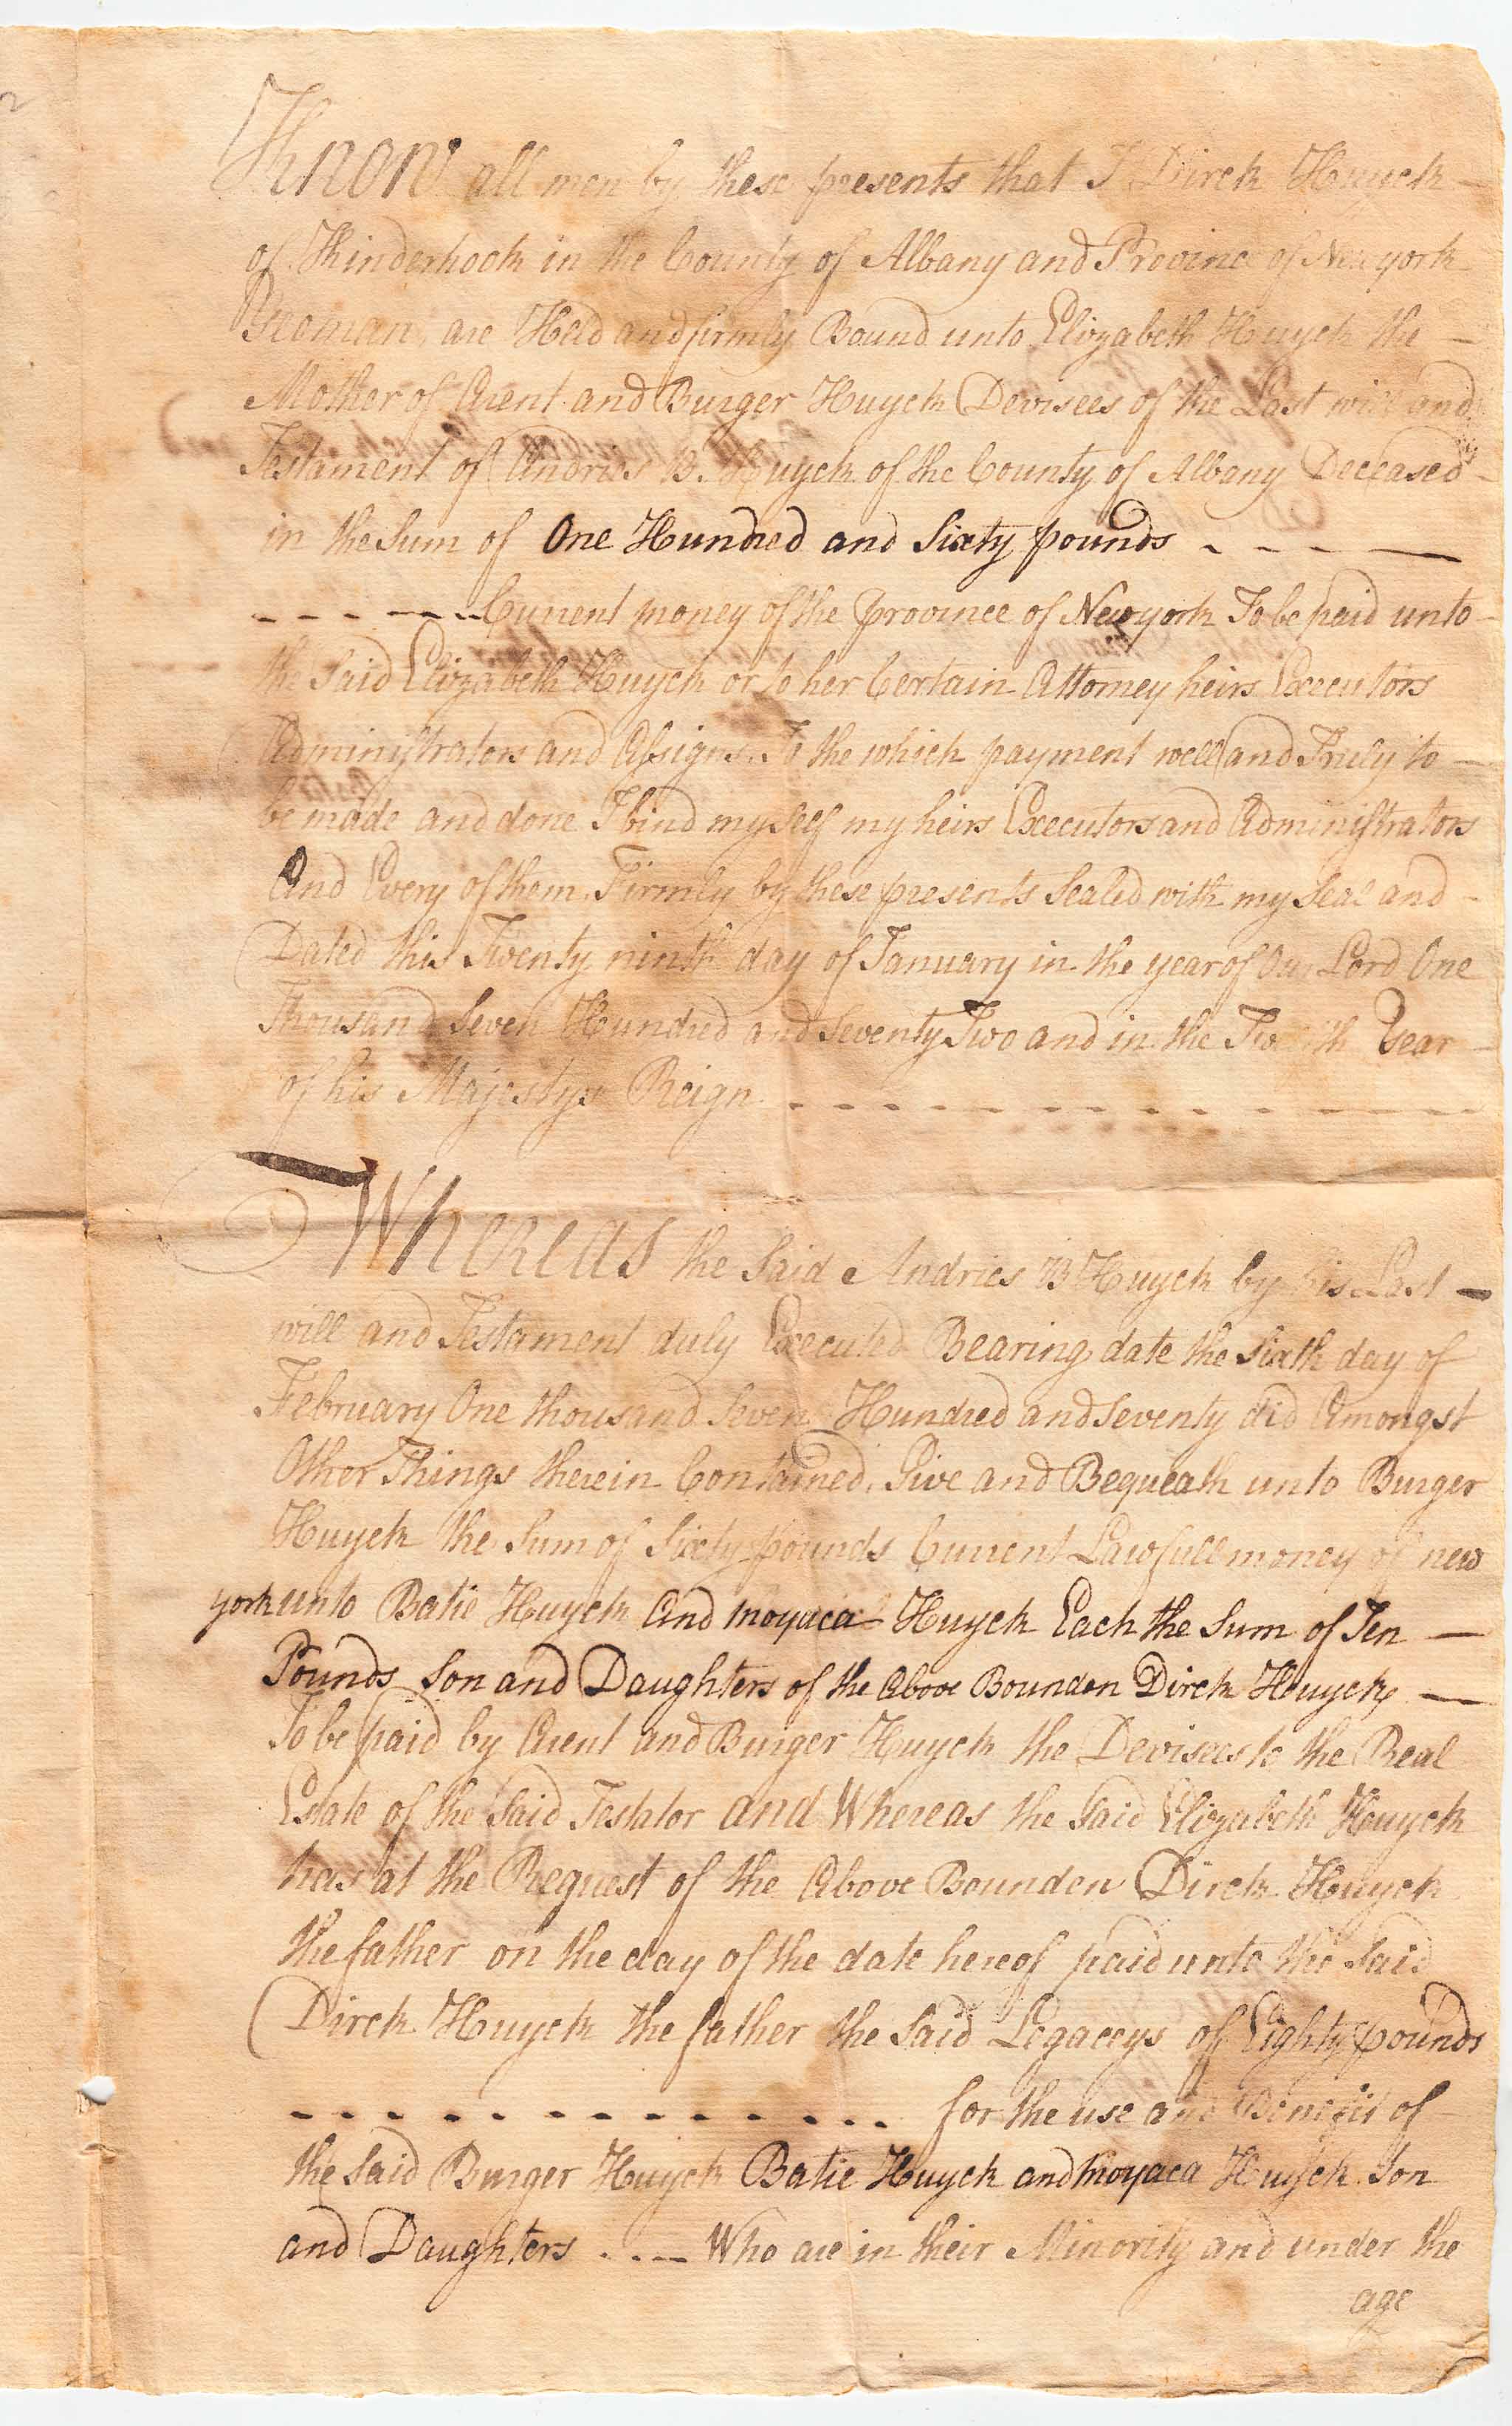 Know all men by these presents that I Dirck Huyck
of Kinderhook in the County of Albany and Province of New york
Yeoman, are Held and firmly Bound unto Elizabeth Huyck the
Mother of Arent and Burger Huyck Devisees of the Last will and
Testament of Andries B. Huyck of the County of Albany Deceased
in the Sum of One Hundred and Sixty pounds - - - -
- - - - - Current money of the province of New york To be paid unto
the Said Elizabeth Huyck or to her Certain Attorney heirs Executors
Administrators and Assigns. To the which payment well and Truly to
be made and done I bind my Self my heirs Executors and Administrators
And Every of them, Firmly by these presents Sealed with my Seal and
Dated this Twenty ninth day of January in the year of Our Lord One
Thousand Seven Hundred and Seventy Two and in the Twelfth Year
of his Majestys Reign - - - - - - - - - - - -
Whereas the Said Andries B Huyck by his Last
will and Testament duly Executed Bearing date the Sixth day of
February One thousand Seven Hundred and Seventy did Amongst
Other Things therein Contained, Give and Bequeath unto Burger
Huyck the Sum of Sixty pounds Current Lawfull money of new
york unto Batie Huyck And moyaca Huyck Each the Sum of Ten
Pounds Son and Daughters of the Above Bounden Dirck Huyck,
To be paid by Arent and Burger Huyck the Devisees to the Real
Estate of the Said Testator and Whereas the Said Elizabeth Huyck
has at the Request of the Above Bounden Dirck Huyck
the father on the day of the date hereof paid unto the Said
Dirck Huyck the father the Said Legaceys of Eighty pounds
- - - - - - - - - - - - for the use and Benefit of
the Said Burger Huyck Batie Huyck and moyaca Huyck Son
and Daughters - - - - Who are in their Minority and under the
age